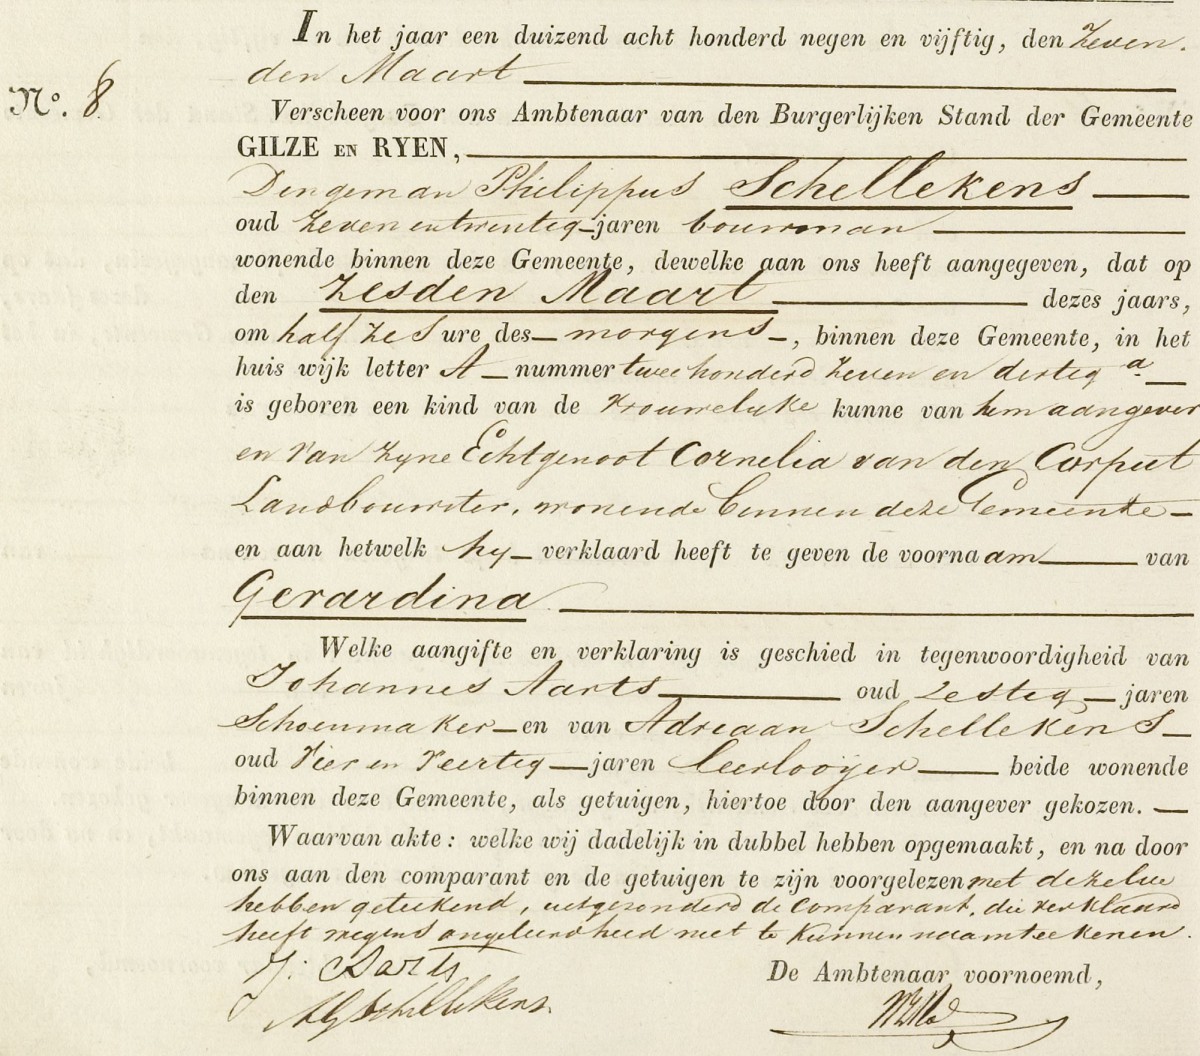 In het jaar een duizend acht honderd negen en vijftig, den Zeven
den Maart
No. 8
Verscheen voor ons Ambtenaar van den Burgerlijken Stand der Gemeente
GILZE EN RYEN,
Dingeman Philippus Schellekens
oud Zeven en twentig jaren bouwman
wonende binnen deze Gemeente, dewelke aan ons heeft aangegeven, dat op
den Zesden Maart dezes jaars,
om half zes ure des morgens, binnen deze Gemeente, in het
huis wijk letter A nummer twee honderd zeven en dertig a
is geboren een kind van de Vrouwelijke kunne van hem aangever
en van zyne Echtgenoot Cornelia van den Corput
Landbouwster, wonende binnen deze Gemeente
en aan hetwelk hy verklaard heeft te geven de voornaam van
Gerardina
Welke aangifte en verklaring is geschied in tegenwoordigheid van
Johannes Aarts oud Zestig jaren
Schoenmaker en van Adriaan Schellekens
oud Vier en Veertig jaren Leerlooijer beide wonende
binnen deze Gemeente, als getuigen, hiertoe door den aangever gekozen.
Waarvan akte: welke wij dadelijk in dubbel hebben opgemaakt, en na door
ons aan den comparant en de getuigen te zijn voorgelezen met dezelve
hebben geteekend, uitgezonderd de comparant, die verklaard
heeft wegens ongeleerdheid niet te kunnen naamteekenen.
J: Aarts De Ambtenaar voornoemd,
Schellekens